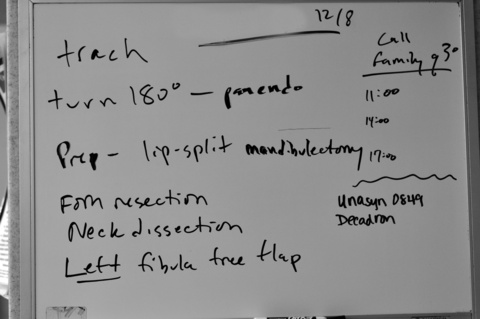 12/8
trach
turn 180° - panendo
Prep - lip-split mandibulectomy
FOM resection
Neck dissection
Left fibula free flap
Call
Family q3°
11:00
14:00
17:00
Unasyn 0849
Decadron